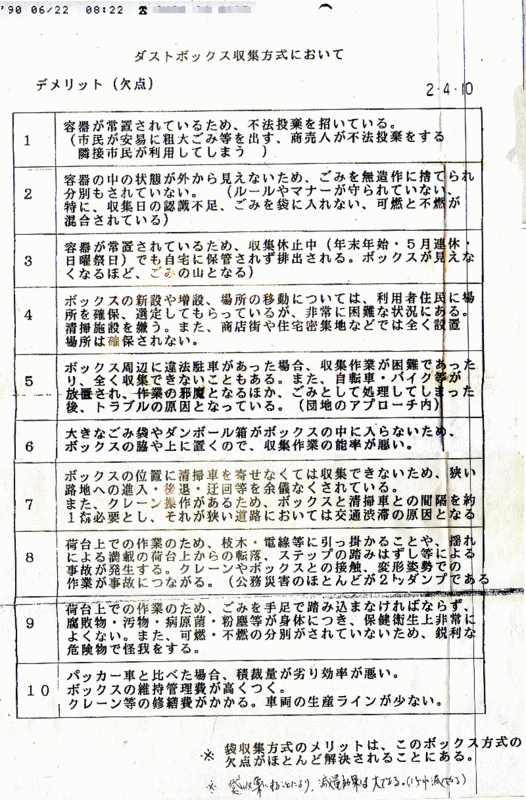 '90 06/22 08:22 ☎
ダストボックス収集方式において
デメリット（欠点）
2・4・10
1
容器が常置されているため、不法投棄を招いている。
（市民が安易に粗大ごみ等を出す、商売人が不法投棄をする
隣接市民が利用してしまう ）
2
容器の中の状態が外から見えないため、ごみを無造作に捨てられ
分別もされていない。（ルールやマナーが守られていない、
特に、収集日の認識不足、ごみを袋に入れない、可燃と不燃が
混合されている）
3
容器が常置されているため、収集休止中（年末年始・5月連休・
日曜祭日）でも自宅に保管されず排出される。ボックスが見えな
くなるほど、ごみの山となる）
4
ボックスの新設や増設、場所の移動については、利用者住民に場
所を確保、選定してもらっているが、非常に困難な状況にある。
清掃施設を嫌う。また、商店街や住宅密集地などでは全く設置
場所は確保されない。
5
ボックス周辺に違法駐車があった場合、収集作業が困難であった
り、全く収集できないこともある。また、自転車・バイク等が
放置され、作業の邪魔となるほか、ごみとして処理してしまった
後、トラブルの原因となっている。（団地のアプローチ内）
6
大きなごみ袋やダンボール箱がボックスの中に入らないため、
ボックスの脇や上に置くので、収集作業の能率が悪い。
7
ボックスの位置に清掃車を寄せなくては収集できないため、狭い
路地への進入・後退・迂回等を余儀なくされている。
また、クレーン操作があるため、ボックスと清掃車との間隔を約
必要とし、それが狭い道路においては交通渋滞の原因となる
8
荷台上での作業のため、枝木・電線等に引っ掛かることや、揺れ
による満載の荷台上からの転落、ステップの踏みはずし等による
事故が発生する。クレーンやボックスとの接触、変形姿勢での
作業が事故につながる。（公務災害のほとんどが2㌧ダンプである
9
荷台上での作業のため、ごみを手足で踏み込まなければならず、
腐敗物・汚物・病原菌・粉塵等が身体につき、保健衛生上非常に
よくない。また、可燃・不燃の分別がされていないため、鋭利な
危険物で怪我をする。
10
パッカー車と比べた場合、積裁量が劣り効率が悪い。
ボックスの維持管理費が高くつく。
クレーン等の修繕費がかかる。車両の生産ラインが少ない。
※ 袋収集方式のメリットは、このボックス方式の
欠点がほとんど解決されることにある。
※ 袋収集にすることにより、減量効果は大である。